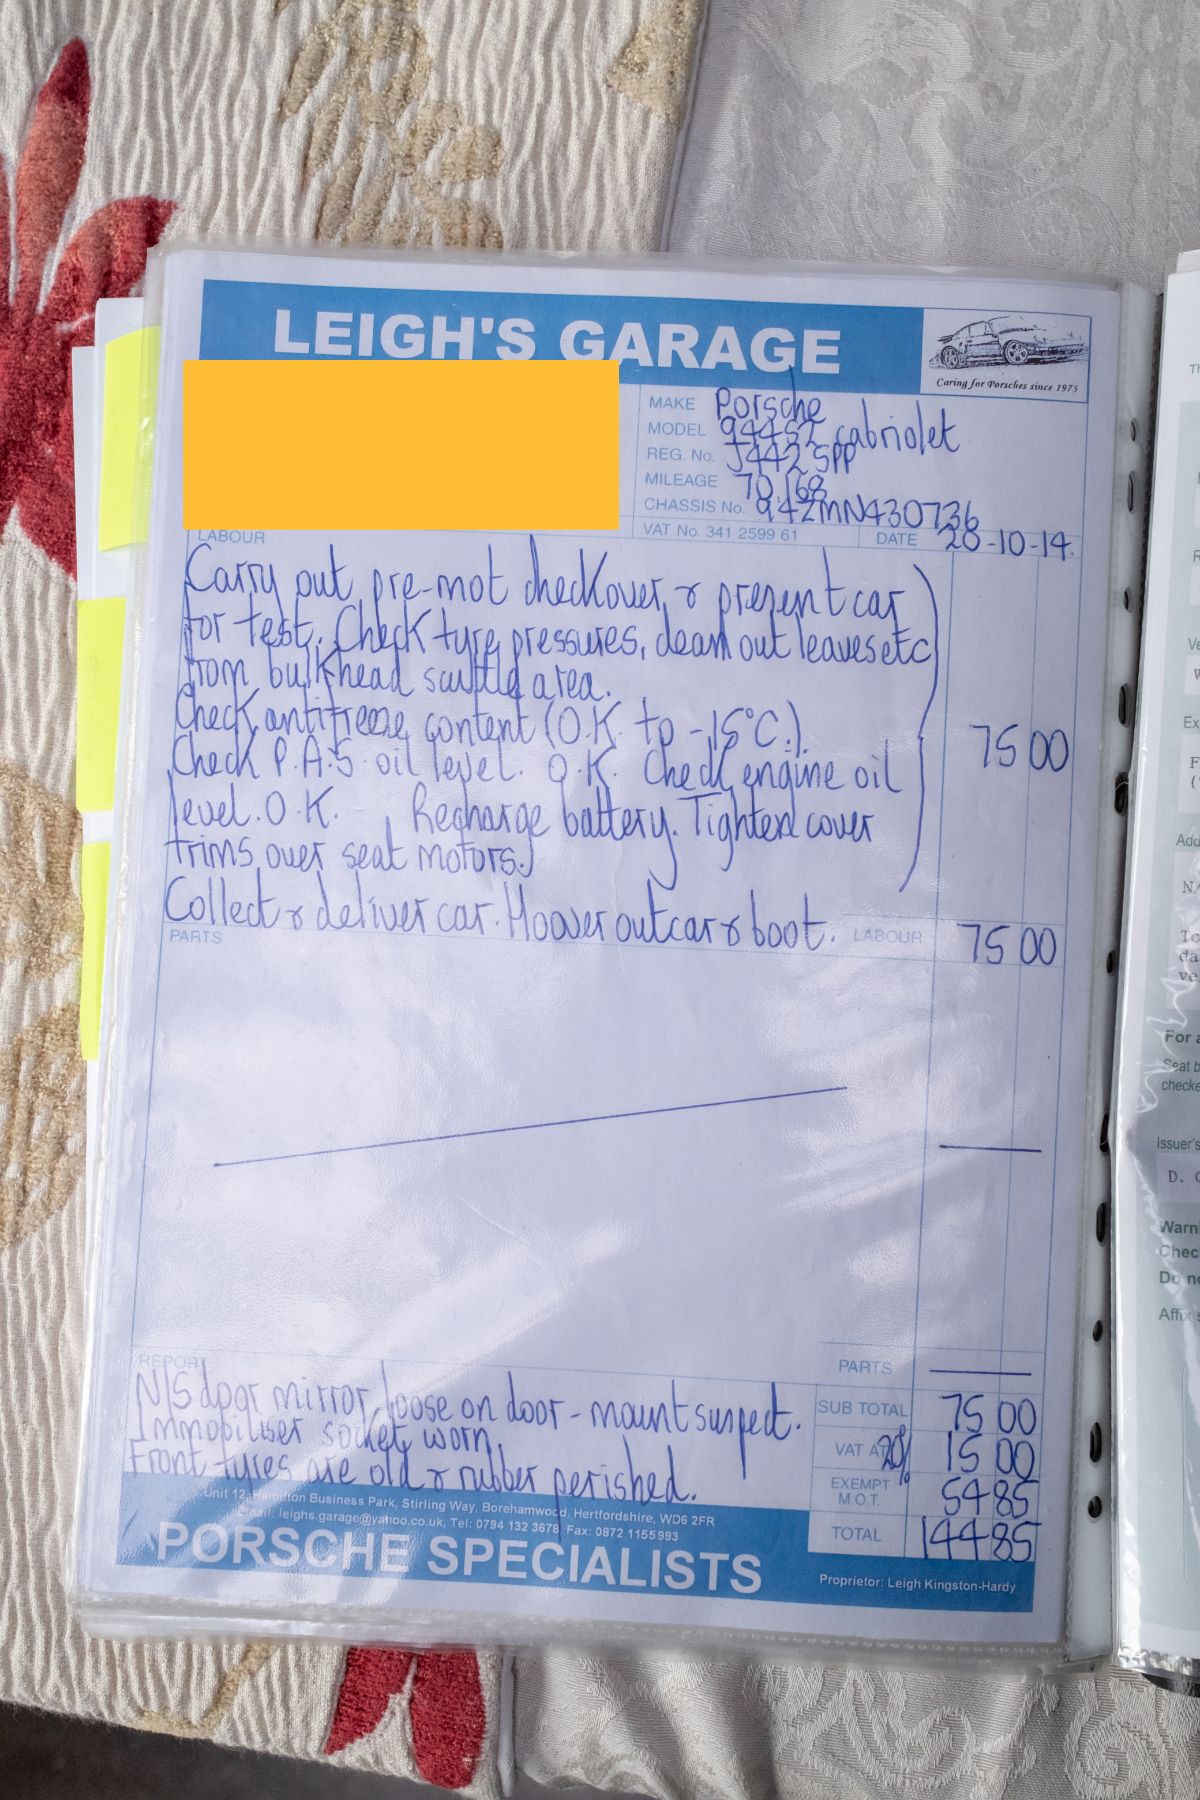 LEIGH'S GARAGE
Caring for Porsches since 1975
MAKE Porsche
MODEL 944S2 cabriolet
REG. No. J442 SPP
MILEAGE 70,168
CHASSIS No. 942MN430736
VAT No. 341 2599 61 DATE 28-10-14.
LABOUR
Carry out pre-mot checkover, & present car
for test. Check tyre pressures, clean out leaves etc
from bulkhead scuttle area.
Check antifreeze content (O.K. to -15°C.).
75 00
Check P.A.S. oil level. O.K. Check engine oil
level. O.K. Recharge battery. Tighten cover
trims over seat motors.
Collect & deliver car. Hoover out car & boot. LABOUR 75 00
PARTS
REPORT
PARTS
N/S door mirror loose on door - mount suspect.
SUB TOTAL 75 00
Immobiliser socket worn.
VAT AT 20% 15 00
Front tyres are old & rubber perished.
EXEMPT M.O.T. 54 85
TOTAL 144 85
Unit 12, Hamilton Business Park, Stirling Way, Borehamwood, Hertfordshire, WD6 2FR
Email: leighs.garage@yahoo.co.uk, Tel: 0794 132 3678, Fax: 0872 1155993
PORSCHE SPECIALISTS
Proprietor: Leigh Kingston-Hardy
Add
For a
Seat b
checke
Issuer's
D.
Warni
Chec
Do no
Affix s